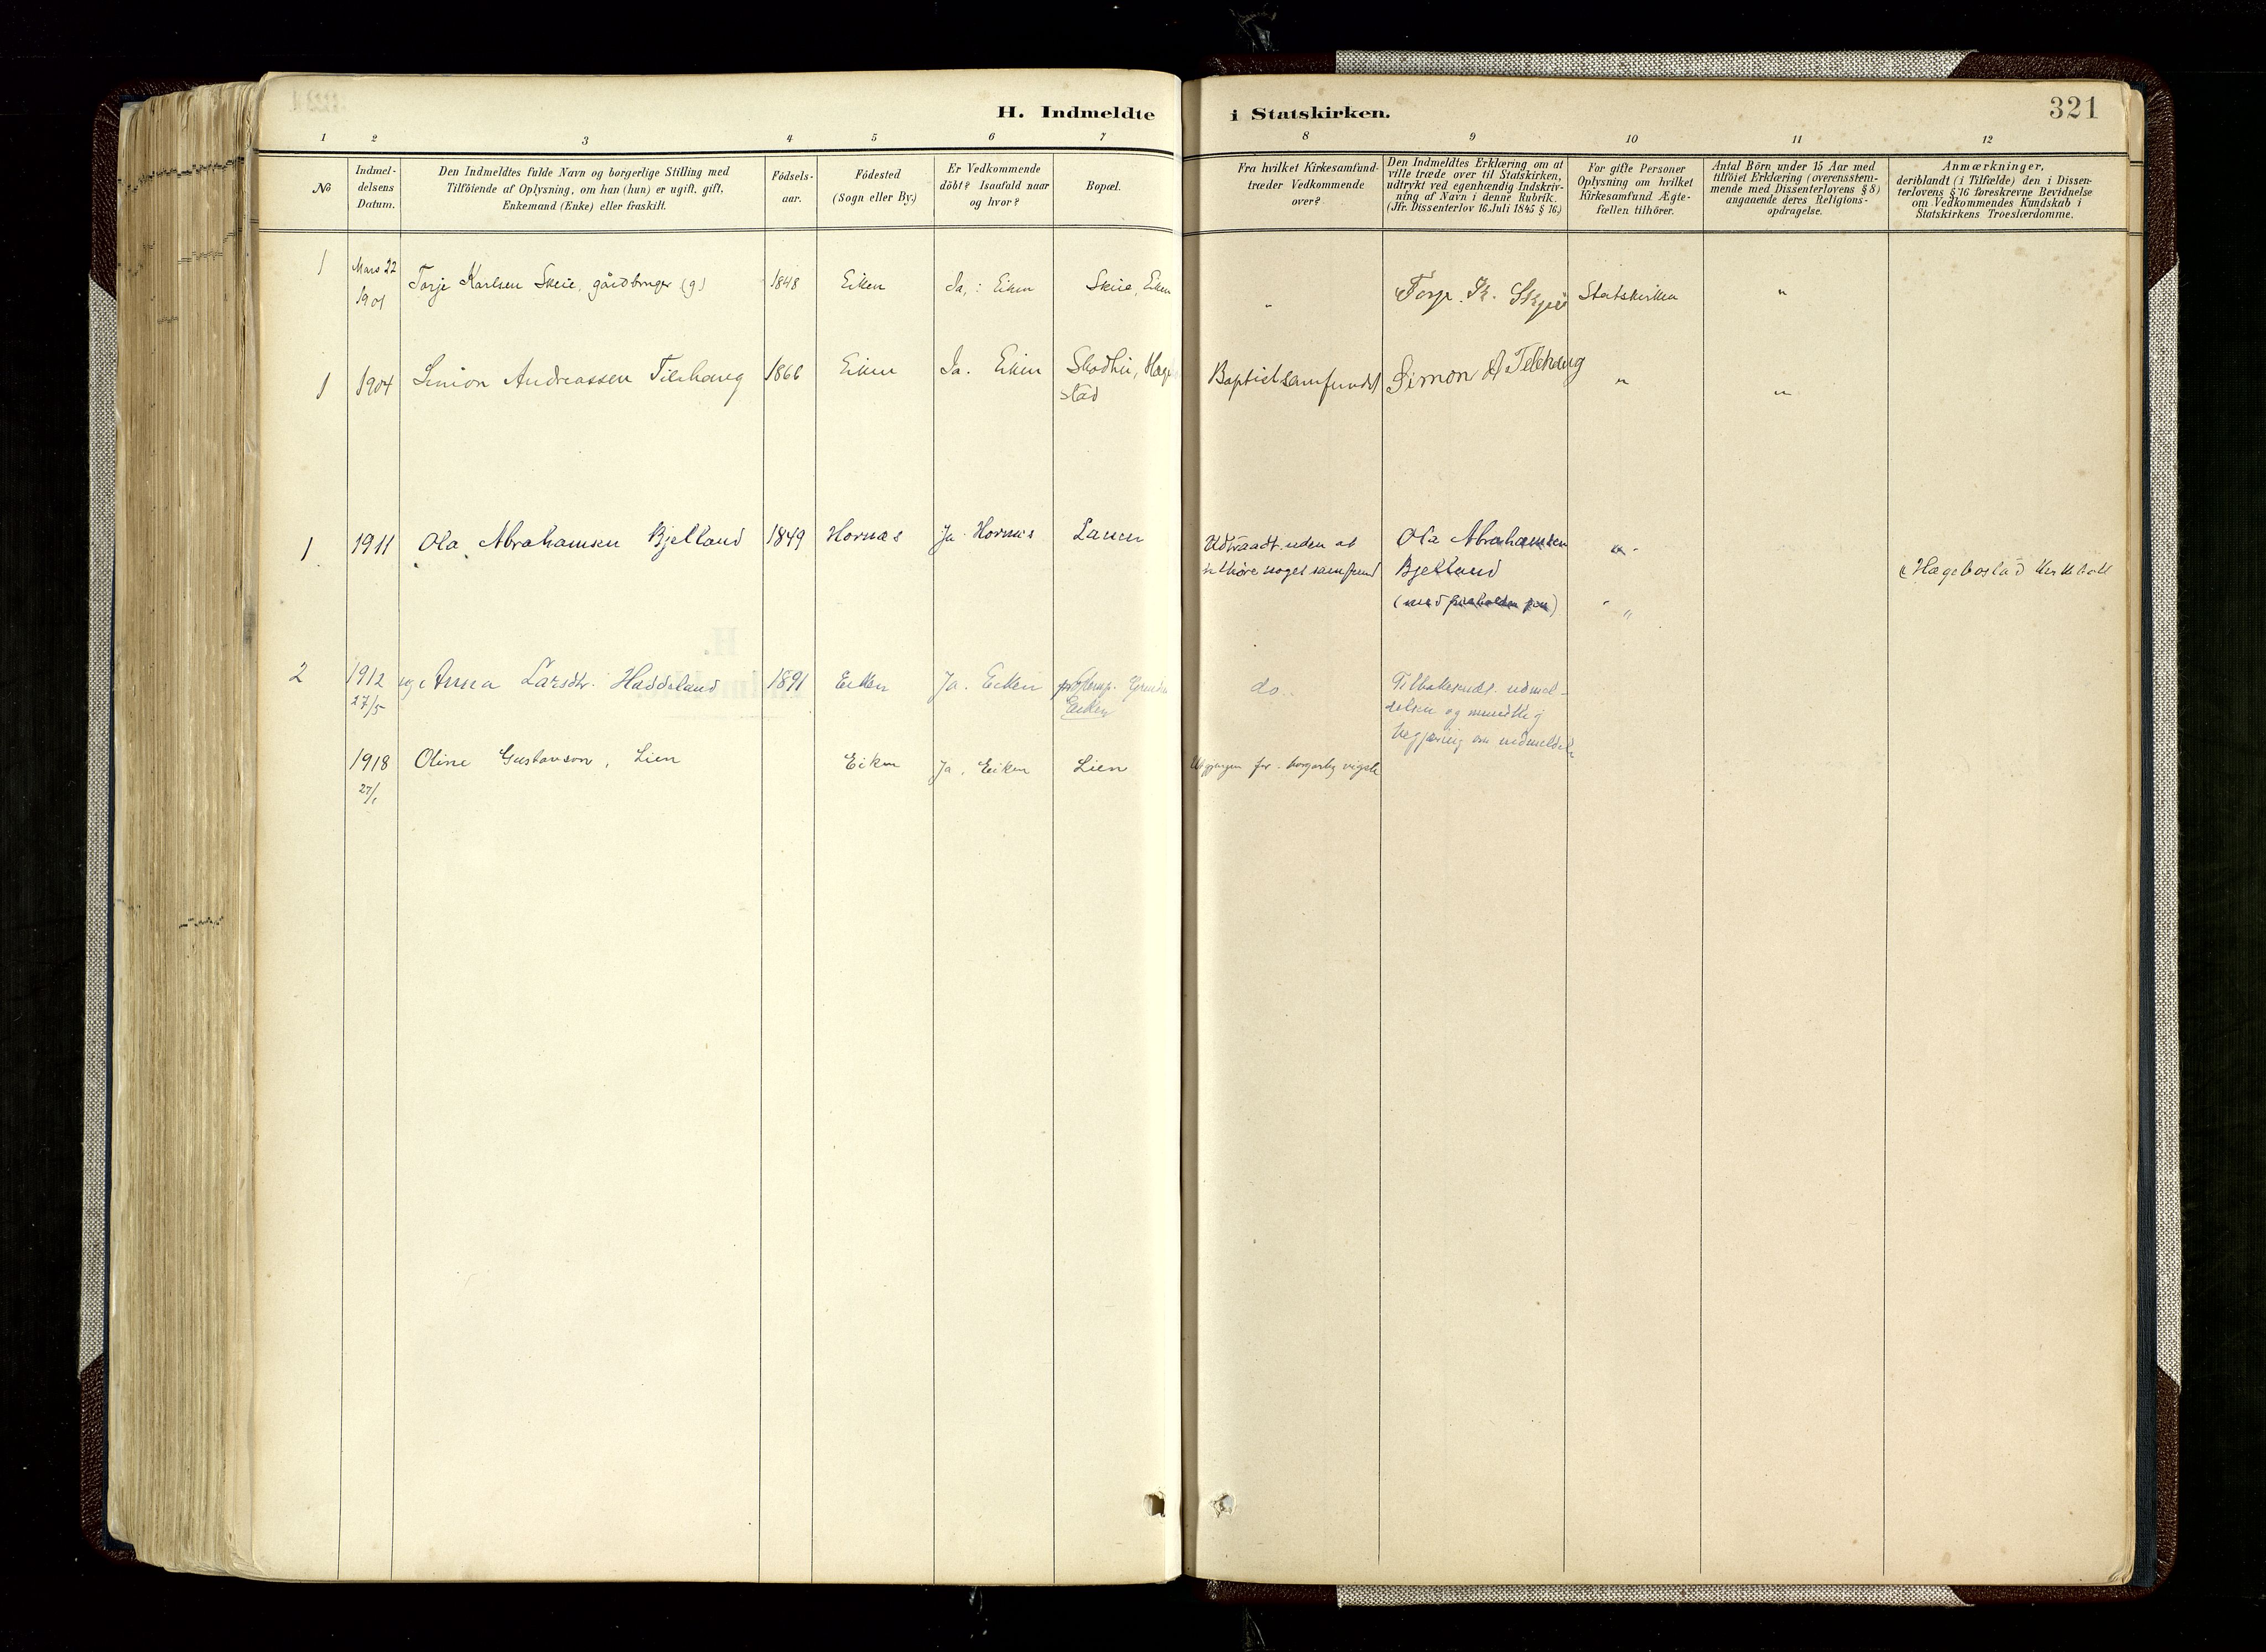 H. Indmeldte i Statskirken.
321
1 2 3 4 5 6 7 8 9 10 11 12
№
Indmel-
delsens
Datum.
Den Indmeldtes fulde Navn og borgerlige Stilling med
Tilföiende af Oplysning, om han (hun) er ugift, gift,
Enkemand (Enke) eller fraskilt.
Födsels-
aar.
Födested
(Sogn eller By.)
Er Vedkommende
döbt? Isaafald naar
og hvor?
Bopæl.
Fra hvilket Kirkesamfund
træder Vedkommende
over?
Den Indmeldtes Erklæring om at
ville træde over til Statskirken,
udtrykt ved egenhændig Indskriv-
ning af Navn i denne Rubrik.
(Jfr. Dissenterlov 16 Juli 1845 § 16.)
For gifte Personer
Oplysning om hvilket
Kirkesamfund Ægte-
fællen tilhörer.
Antal Börn under 15 Aar med
tilföiet Erklæring (overensstem-
mende med Dissenterlovens § 8)
angaaende deres Religions-
opdragelse.
Anmærkninger,
deriblandt (i Tilfælde) den i Dissen-
terlovens § 16 foreskrevne Bevidnelse
om Vedkommendes Kundskab i
Statskirkens Troeslærdomme.
1 Mars 22 Torje Karlsen Skeie, gårdbruger (g) 1848 Eiken Ja, : Eiken Skeie, Eiken " Torje K. Skjeie Statskirken "
1901
1 1904 Simon Andreassen Tilehaug 1866 Eiken Ja. Eiken Skodli, Hæge Baptistsamfundet Simon A Telehaug " "
stad
1 1911 Ola Abrahamsen Bjelland 1849 Hornæs Ja. Hornes Lauen Udtraadt uden at Ola Abrahamsen "
tilhöre noget samfund Bjelland Hægebostad
(med "
2 1912 ug. Anna Larsdtr. Haddeland 1891 Eiken Ja. Eiken do.. Tilbakesendt udmel-
27/5 Eiken delsen og mundtlig
begjæring om indmeldelse
1918 Oline Gustavson, Lien Eiken Ja, Eiken Lien for borgerlig vigsle
27/1